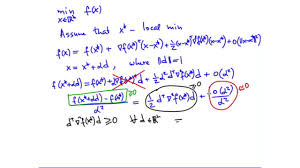 min f(x)
x∈ℝⁿ
Assume that x* - local min
f(x) = f(x*) + ∇f(x*)(x-x*) + ½(x-x*)ᵀ∇²f(x*)(x-x*) + O(‖x-x*‖²)
x = x*+αd, where ‖d‖=1
f(x*+αd) = f(x*) + ∇f(x*)αd + ½α²dᵀ∇²f(x*)d + O(α²)
(f(x*+αd) - f(x*))/α² ≥0 = ½ dᵀ∇²f(x*)d + O(α²)/α² ≈0
dᵀ∇²f(x*)d ≥0 ∀ d∈ℝⁿ =